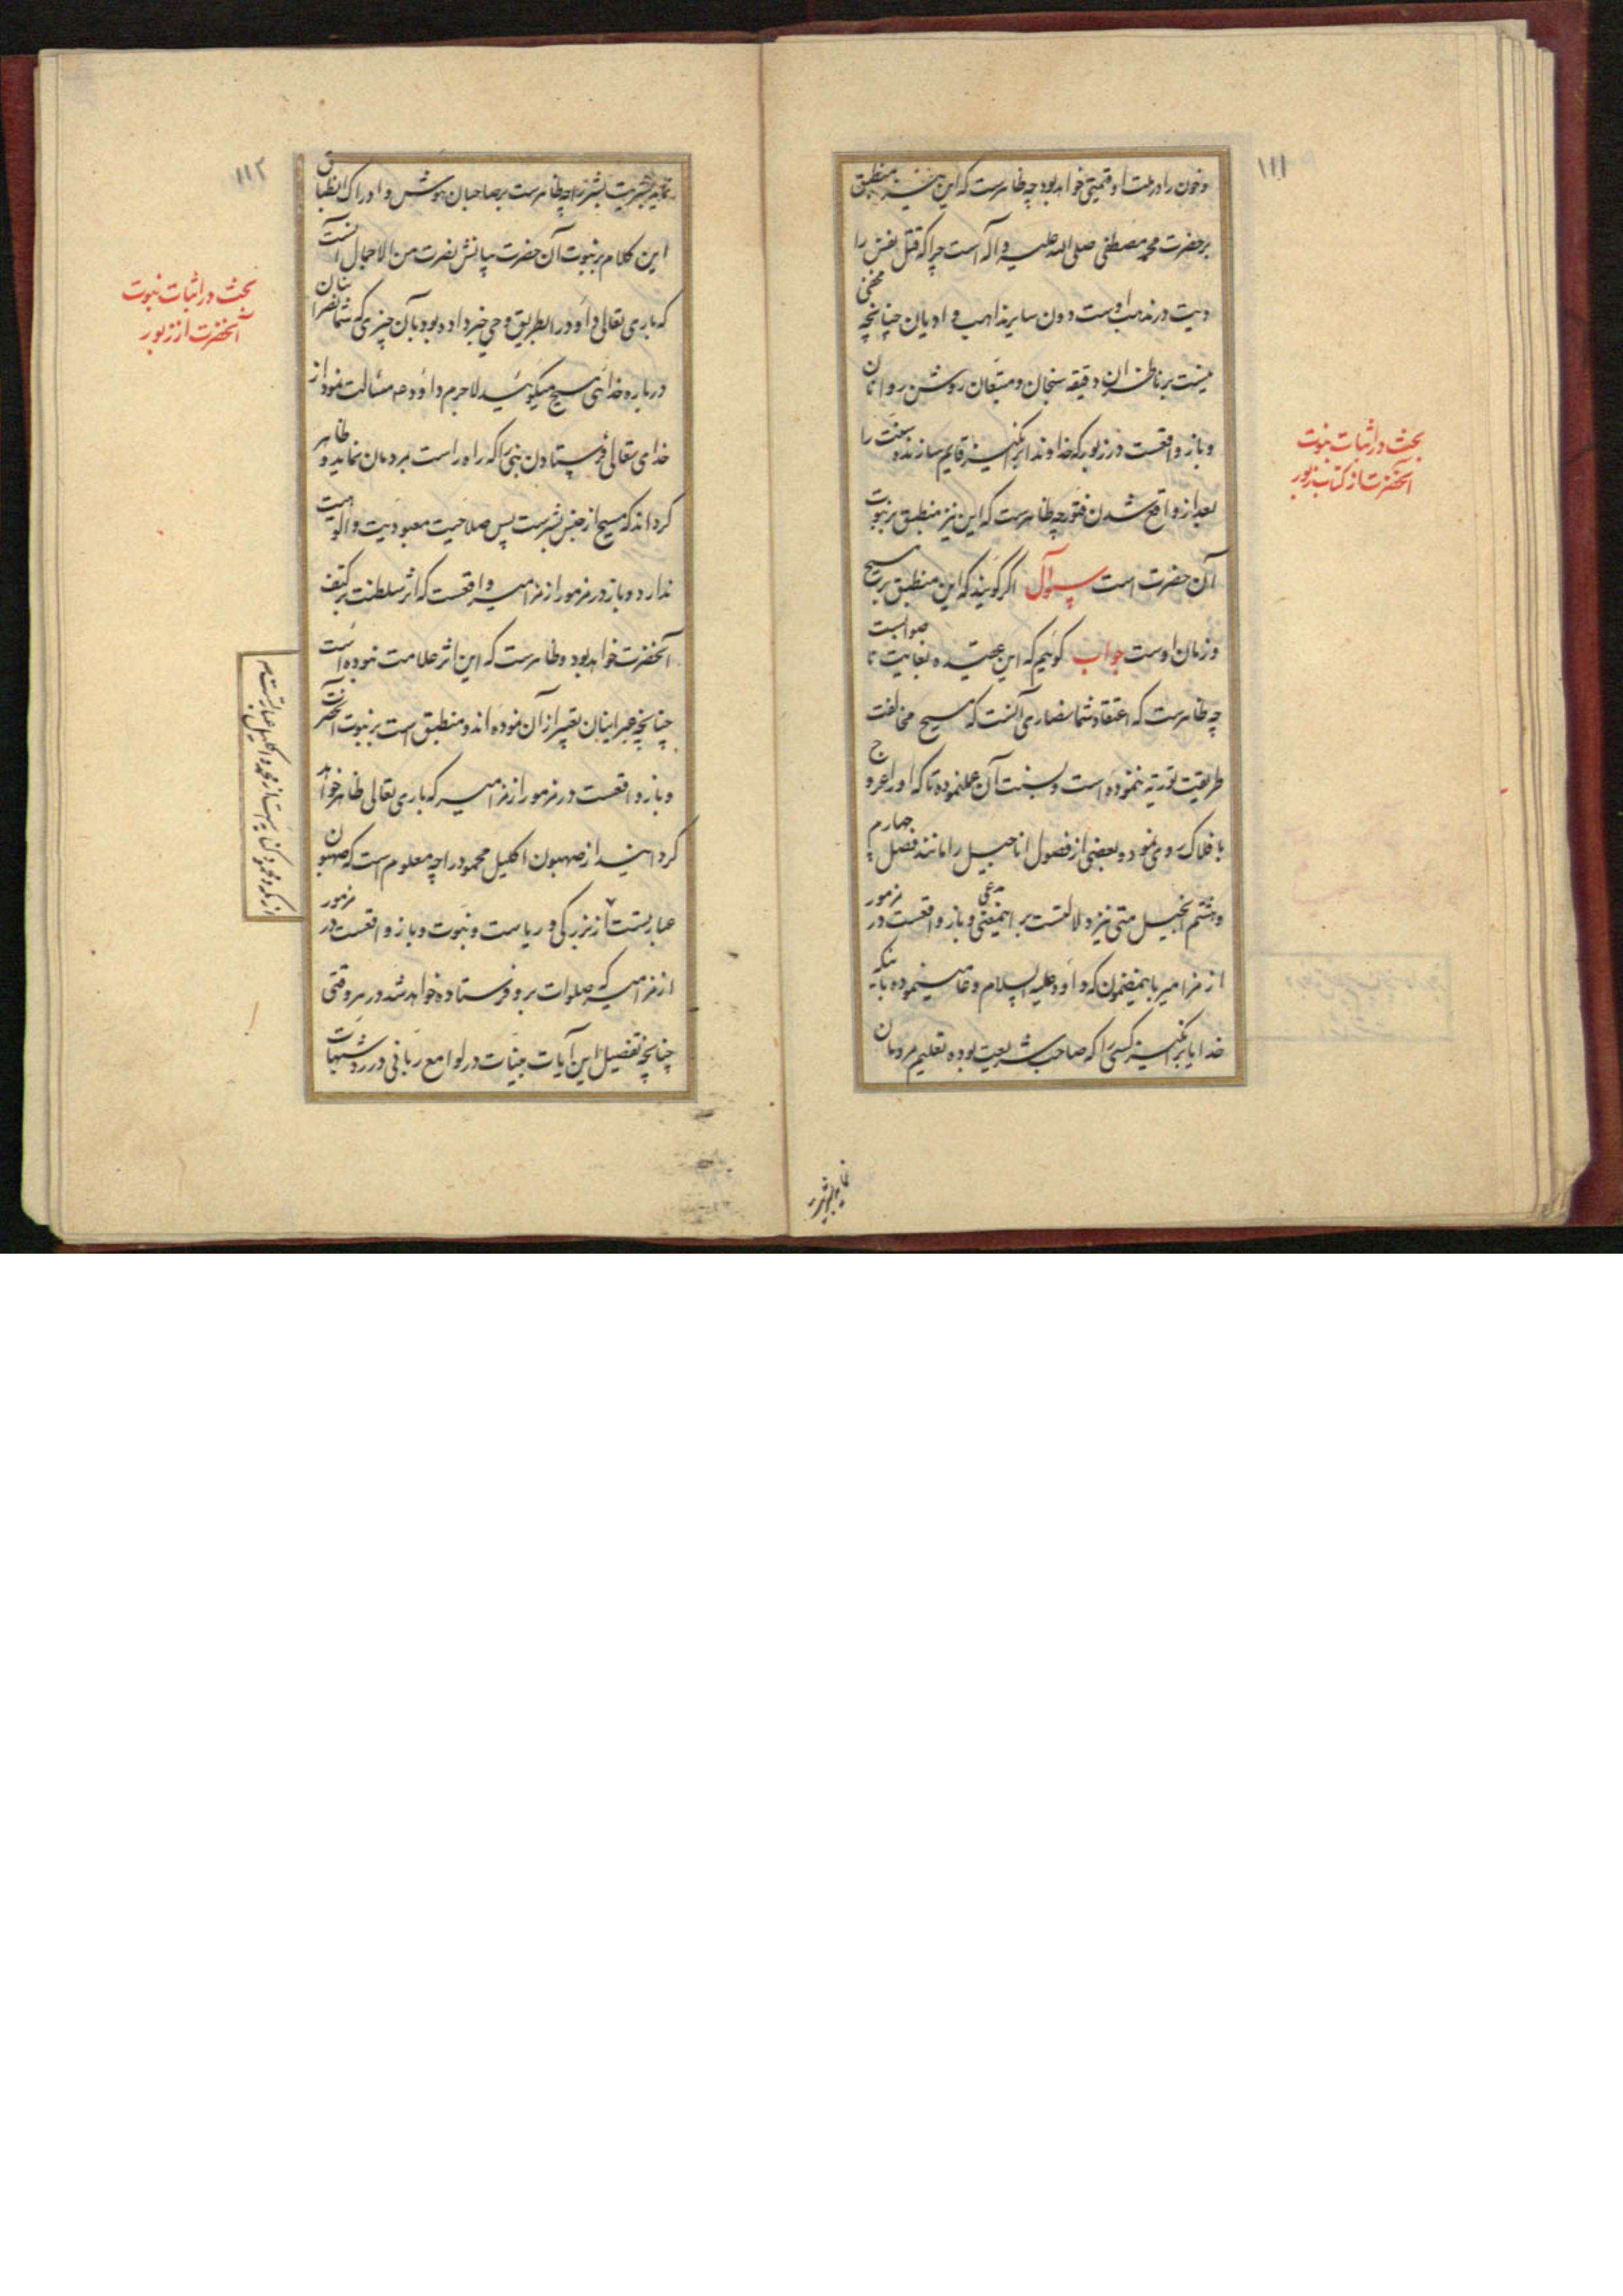 ۱۱۱
و خون را در ملت او قیمتی خواهد بود چه ظاهرست که این نیز منطبق
بر حضرت محمد مصطفی صلی الله علیه و آله است چرا که قتل نفس را
دیت در مذهب اوست دون سایر مذاهب و ادیان چنانچه مخفی
نیست بر ناظران دقیقه سنجان و متتبعان روشن روانان
و باز واقعست در زبور که خداوندا برانگیز قایم سازنده سنت را
بعد از واقع شدن فتور چه ظاهرست که این نیز منطبق بر نبوت
آن حضرت است سوال اگر گویند که این منطبق بر مسیح
و زمان اوست جواب گوییم که این عقیده بغایت نا صوابست
چه ظاهرست که اعتقاد شما نصاری آنست که مسیح مخالفت
طریقت توریة ننموده است و بسنت آن عمل نموده تا که او را عروج
بافلاک روی نموده و بعضی از فصول اناجیل را مانند فصل چهارم
و هشتم انجیل متی نیز دلالتست بر اینمعنی مدعی و باز واقعست در مزمور
از مزامیر باینمضمون که داود علیه السلام دعا مینموده باینکه
خدایا برانگیز کسی را که صاحب شریعت بوده تعلیم مردمان
بحث در اثبات نبوت
آنحضرت از کتاب زبور
نماید بشریت
۱۱۲
نماید بشریت بشر را چه ظاهرست بر صاحبان هوش و ادراک انطباق
این کلام بر نبوت آن حضرت بیانش نصرت من الاجمال آنست
که باری تعالی داود را بطریق وحی خبر داده بود بآن چیزی که شما نصرانیان
در باره خدائی مسیح میگوئید لاجرم داود مسالت نمود از
خدای تعالی فرستادن نبی را که راه راست بمردمان نماید و ظاهر
گرداند که مسیح از جنس بشرست پس صلاحیت معبودیت و الوهیت
ندارد و باز در مزمور از مزامیر واقعست که اثر سلطنت بر کتف
آنحضرت خواهد بود و ظاهرست که این اثر علامت نبوده است
چنانچه عبرانیان تعبیر از آن نموده اند و منطبق است بر نبوت آنحضرت
و باز واقعست در مزمور از مزامیر که باری تعالی ظاهر خواهد
گردانید از صهیون اکلیل محمود را چه معلوم است که صهیون
عبارتست از بزرگی و ریاست و نبوت و باز واقعست در مزمور
از مزامیر که صلوات برو فرستاده خواهد شد در هر وقتی
چنانچه تفصیل این آیات بینات در لوامع ربانی در رد شبهات
بحث در اثبات نبوت
آنحضرت از زبور